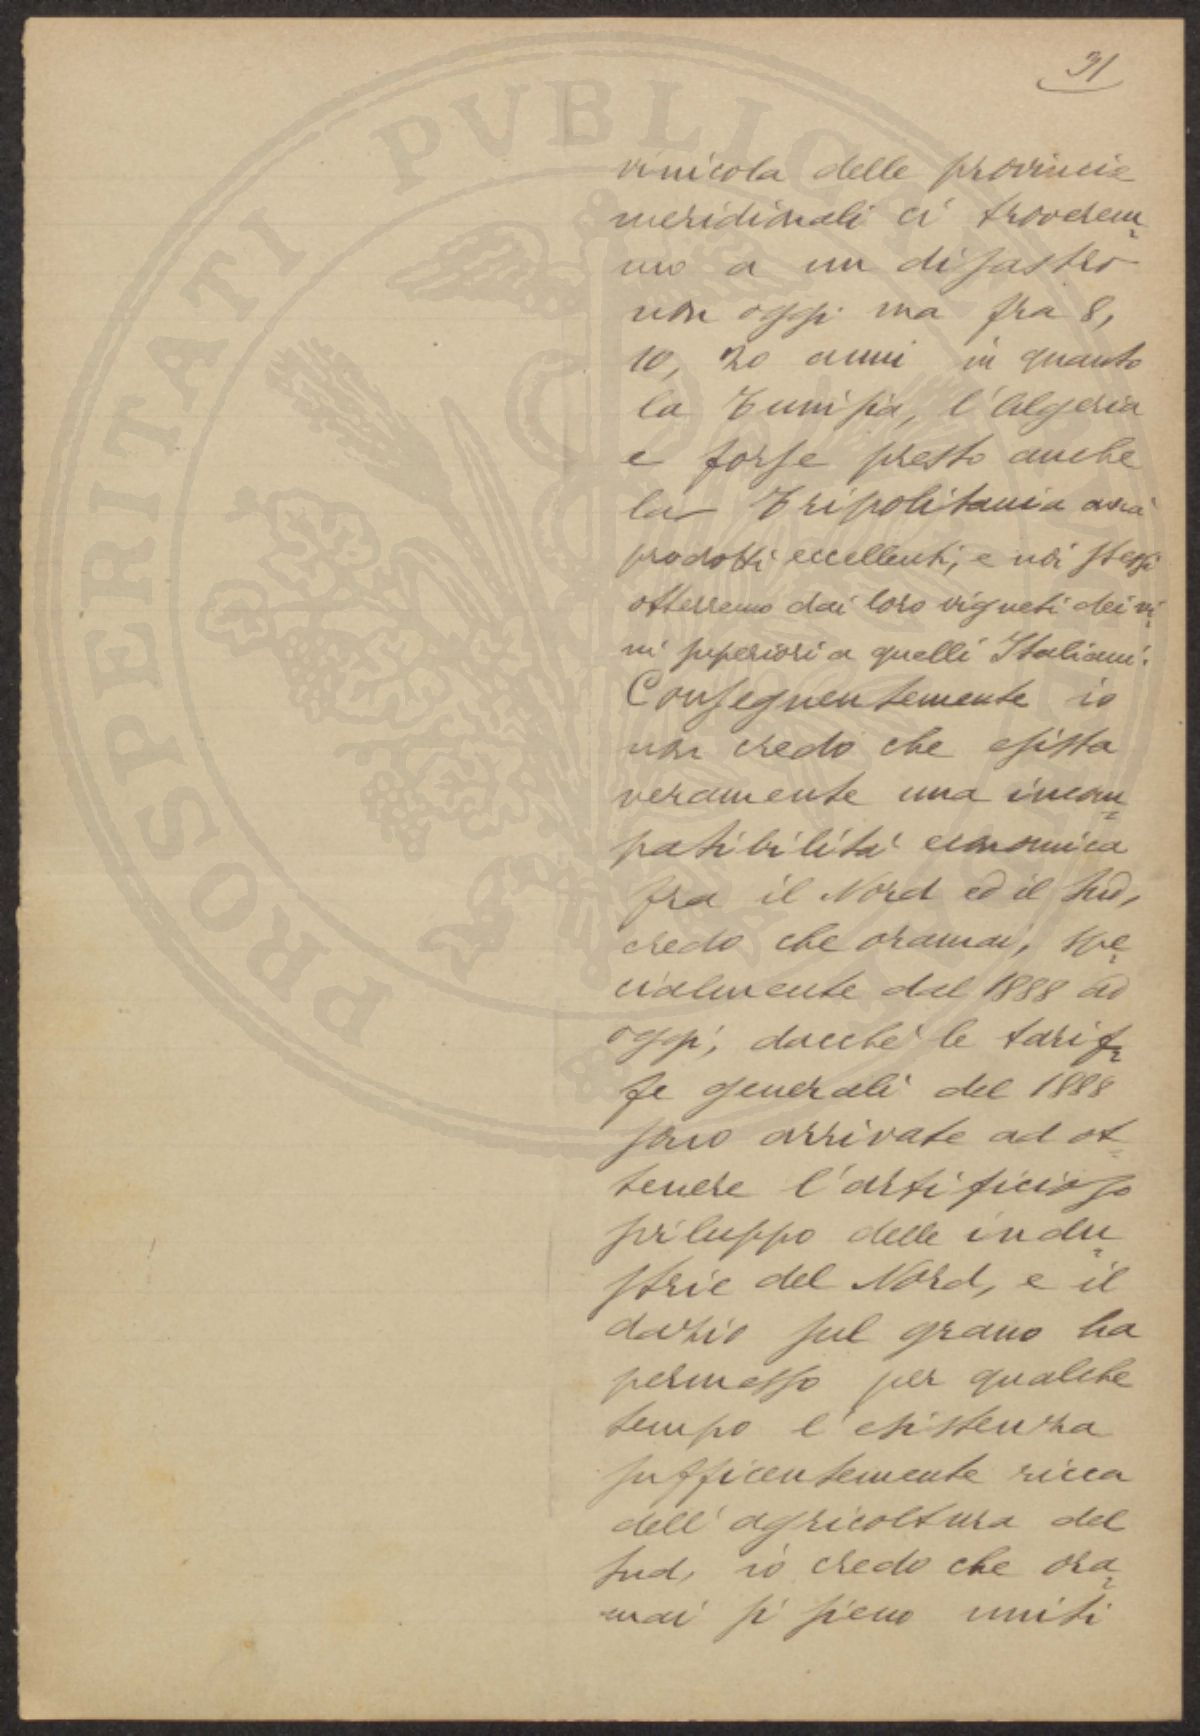 31
PROSPERITATI PUBLICAE
vinicola delle provincie
meridionali ci troverem=
mo a un disastro
non oggi ma fra 8,
10, 20 anni in quanto
la Tunisia, l'Algeria
e forse presto anche
la Tripolitania avrà
prodotti eccellenti, e noi stessi
otterremo dai loro vigneti dei vi=
ni superiori a quelli Italiani.
Conseguentemente io
non credo che esista
veramente una incom=
patibilità economica
fra il Nord ed il Sud,
credo che oramai, spe=
cialmente dal 1888 ad
oggi, dacché le tarif=
fe generali del 1888
sono arrivate ad ot=
tenere l'artificioso
sviluppo delle indu=
strie del Nord, e il
dazio sul grano ha
permesso per qualche
tempo l'esistenza
sufficentemente ricca
dell'agricoltura del
Sud, io credo che ora=
mai si sieno uniti